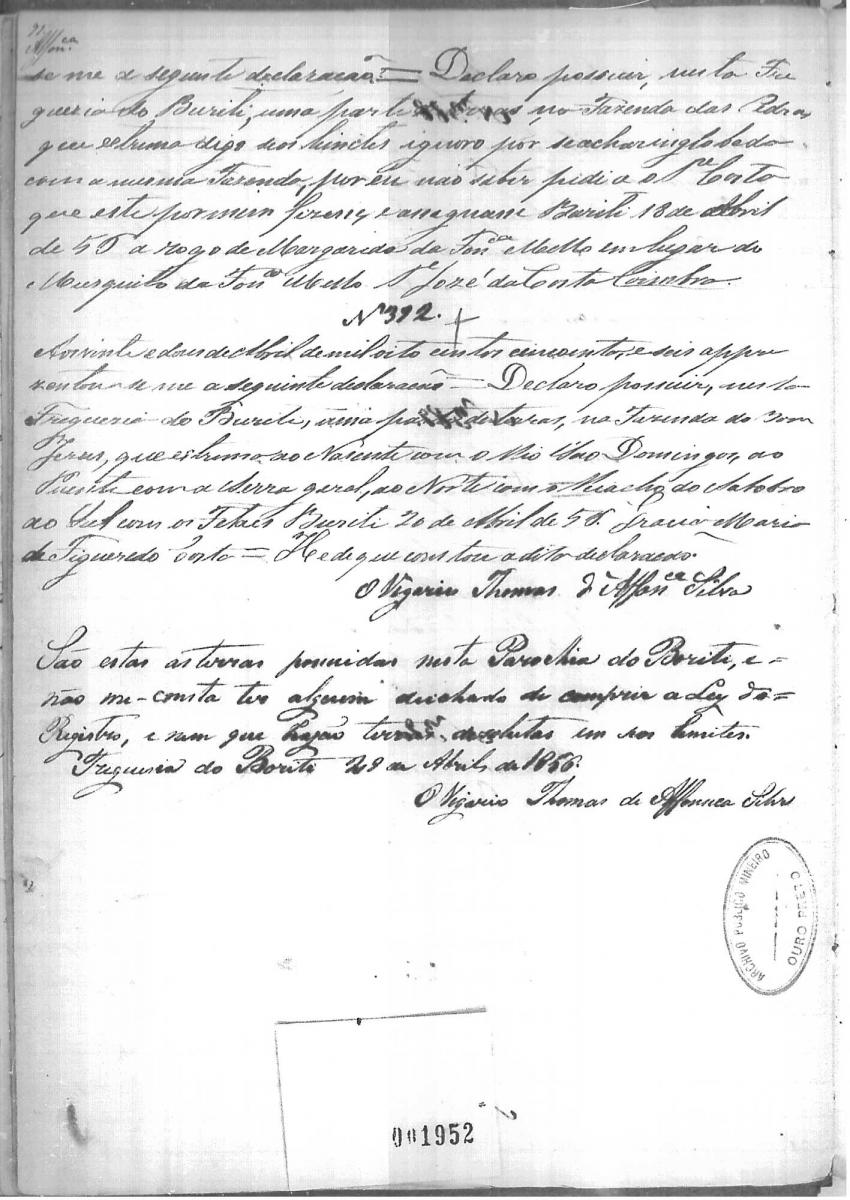 Affon.ca
se me a seguinte declaracaõ = Declaro possuir, nesta Fre
guezia do Buriti, uma parte de terras, na Fazenda das Pedras,
que estrema digo seos limites ignoro por se achar inglobada
com a mesma Fazenda, por eu não saber pedi a o Snr Costa
que este por mim fizesse, e assignasse Buriti 18 de Abril
de 56 a rogo de Margarida da Fonca Mello em lugar do
Mesquita da Fonca Mello José da Costa
Nº 392.
Aos vinte e dous de Abril de mil oito centos cincoenta, e seis appre
zentou-se me a seguinte declaracaõ = Declaro possuir, nesta
Freguezia do Buriti, uma parte de terras, na Fazenda do Bom
Jezus, que estrema ao Nascente com o Rio São Domingos, ao
Puente com a Serra geral, ao Norte com o Riacho do
ao Sul com os Buriti 20 de Abril de 56. Maria
de Figueredo Costa = He de que constou a dita declaracaõ.
O Vigario Thomas d'Affonca Silva
São estas as terras possuidas nesta Parochia do Boriti, e
não me-consta ter alguem deichado de comprir a Ley do
Registro, e nem que hajão terras devolutas em seos limites.
Freguesia do Boriti 28 de Abril de 1856.
O Vigario Thomas de Affonseca Silva
ARCHIVO PUBLICO MINEIRO
OURO PRETO
001952